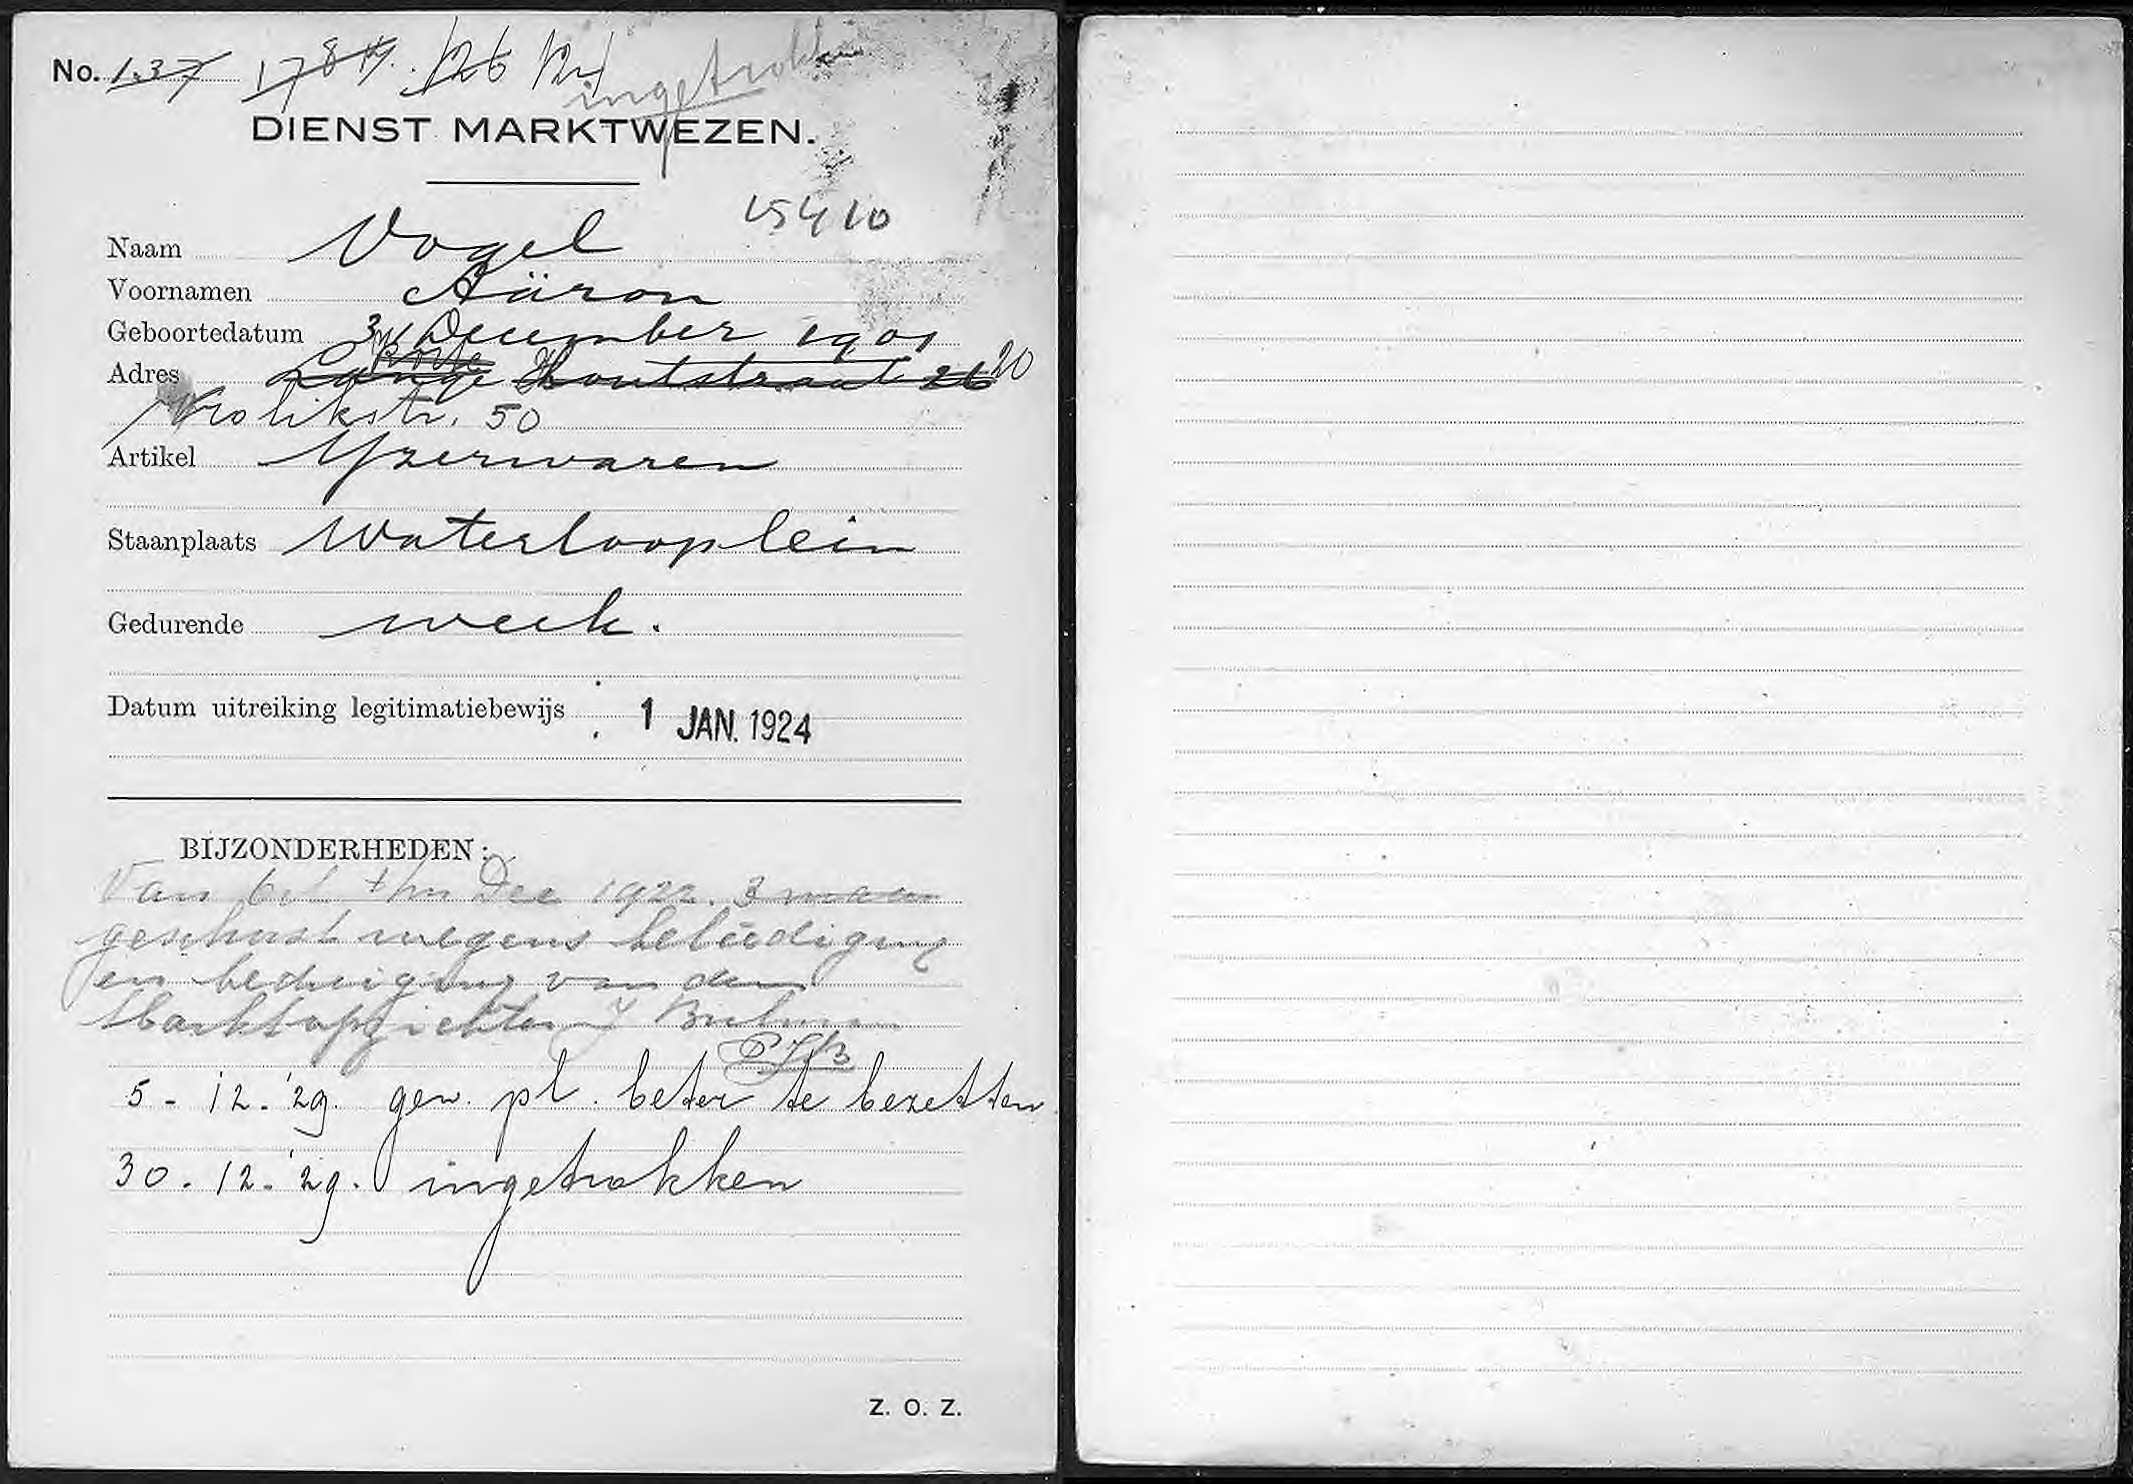 No. 137 178
ingetrokken
DIENST MARKTWEZEN.
15410
Naam Vogel
Voornamen Aäron
Geboortedatum 31 December 1901
Adres Lange Korte Houtstraat 26 20
Krolikstr. 50
Artikel Yzerwaren
Staanplaats Waterlooplein
Gedurende week.
Datum uitreiking legitimatiebewijs 1 JAN. 1924
BIJZONDERHEDEN:
Van Oct t/m Dec 1922. 3 maan
geschorst wegens beleediging
en bedreiging van den
Marktopzichter J
5-12-'29. gew. pl. beter te bezetten
30-12-'29. ingetrokken
Z. O. Z.